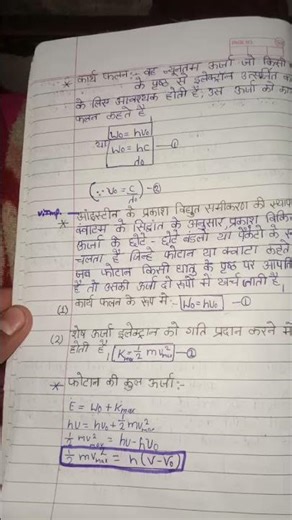 * कार्य फलन:- वह न्यूनतम ऊर्जा जो किसी
के पृष्ठ से इलेक्ट्रॉन उत्सर्जित
के लिस आवश्यक होती है, उस ऊर्जा को
फलन कहते हैं
W₀ = hν₀
या W₀ = hc — ①
d₀
(∵ ν₀ = c/d₀) — ②
v.imp. — आइंस्टीन के प्रकाश विद्युत समीकरण की
* क्वाटम के सिद्धांत के अनुसार प्रकाश
ऊर्जा के छोटे - छोटे बंडलो या पैकेटो के
चलता हैं जिन्हे फोटान या क्वाटा कहते
जब फोटान किसी धातु के पृष्ठ पर
हैं तो उसकी ऊर्जा दो रूपों में खर्च जाती है ।
(1) कार्य फलन के रूप में:- W₀ = hν₀ — ①
(2) शेष ऊर्जा इलेक्ट्रान को गति प्रदान करने में
होती हैं, Kmax = 1/2 mv²max — ②
* फोटान की कुल ऊर्जा:-
E = W₀ + Kmax
hν = hν₀ + 1/2 mv²max
1/2 mv²max = hν - hν₀
1/2 mv²max = h(ν-ν₀)